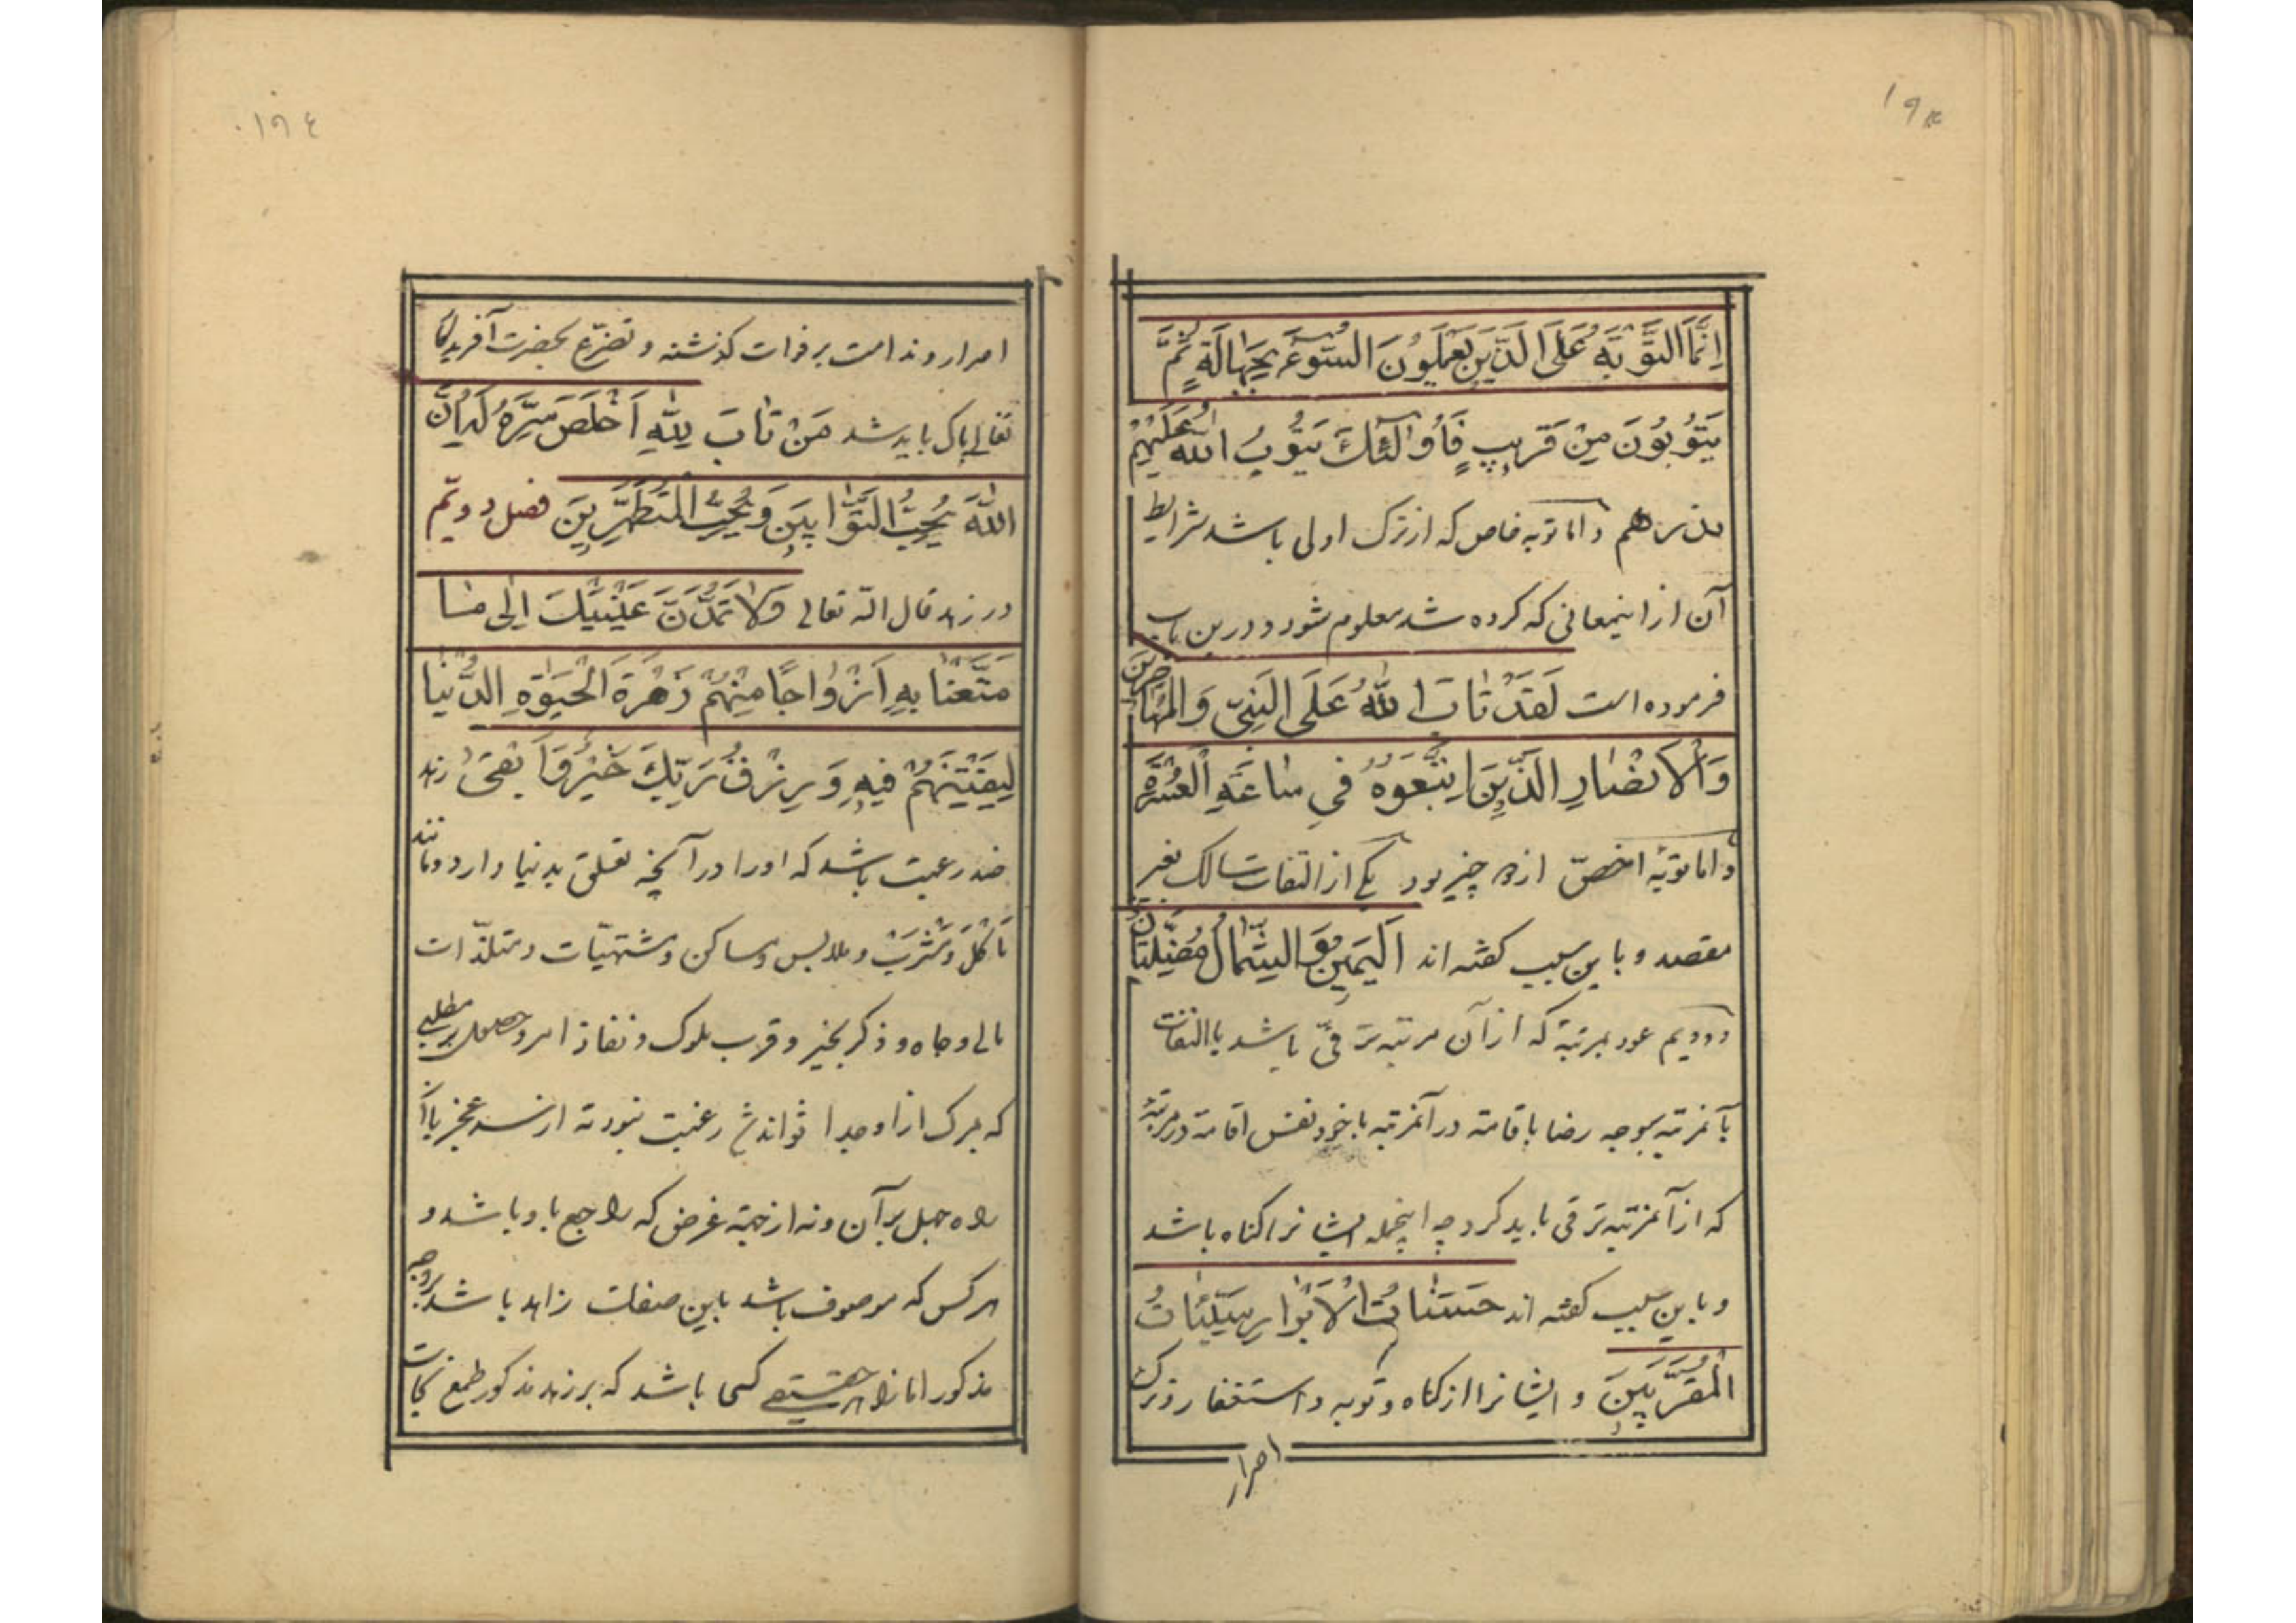 ١٩٣
إِنَّمَا التَّوْبَةُ عَلَى الَّذِينَ يَعْمَلُونَ السُّوءَ بِجَهَالَةٍ ثُمَّ
يَتُوبُونَ مِنْ قَرِيبٍ فَأُولَٰئِكَ يَتُوبُ اللهُ عَلَيْهِمْ
و اما توبه خاص که از ترک اولی باشد شرایط
آن از اینمعانی که کرده شد معلوم شود و درین باب
فرموده است لَقَدْ تَابَ اللهُ عَلَى النَّبِيِّ وَالْمُهَاجِرِينَ
وَالْأَنْصَارِ الَّذِينَ اتَّبَعُوهُ فِي سَاعَةِ الْعُسْرَةِ
و اما توبهٔ اخصّ از دو چیز بود یکی از التفات سالک بغیر
مقصد و باین سبب کفته اند اَلْيَمِينُ وَالشِّمَالُ مُضِلَّتَانِ
و دویم عود بمرتبهٔ که از آن مرتبه ترقی باشد با التفات
بآنمرتبه بوجه رضا باقامة در آنمرتبه نفس اقامة در مرتبهٔ
که از آنمرتبه ترقی باید کرد چه اینجمله ایشانرا کناه باشد
و باین سبب کفته اند حَسَنَاتُ الْأَبْرَارِ سَيِّئَاتُ
الْمُقَرَّبِينَ و ایشانرا از کناه و توبه و استغفار و ترک
اصرار
١٩٤
اصرار و ندامت بر فوات کذشته و تضرّع بحضرت آفریدکار
تعالی پاک باید شد مَنْ تَابَ لِلّٰهِ اَخْلَصَ سِرَّهُ لَهُ اِنَّ
اللهَ يُحِبُّ التَّوَّابِينَ وَيُحِبُّ الْمُتَطَهِّرِينَ فصل دویّم
در زهد قال الله تعالی وَلَا تَمُدَّنَّ عَيْنَيْكَ إِلَى مَا
مَتَّعْنَا بِهِ اَزْوَاجًا مِنْهُمْ زَهْرَةَ الْحَيٰوةِ الدُّنْيَا
لِيَفْتِنَهُمْ فِيهِ وَرِزْقُ رَبِّكَ خَيْرٌ وَاَبْقَىٰ زهد
ضد رغبت باشد که او را در آنچه تعلق بدنیا دارد مانند
مَأْكَل وَمَشْرَب و ملابس و مساکن و مشتهیّات و متلذّات
مالی و جاه و ذکر بخیر و قرب ملوک و نفاذ امر و حصول مطلبی
که بمرک از او جدا تواند شد رغبت نبود نه از سر عجز یا از
راه جهل بر آن و نه از جهة غرض که راجع باو باشد و
هر کس که موصوف باشد باین صفات زاهد باشد بر وجه
مذکور اما زاهد حقیقی کسی باشد که بر زهد مذکور طمع نجات